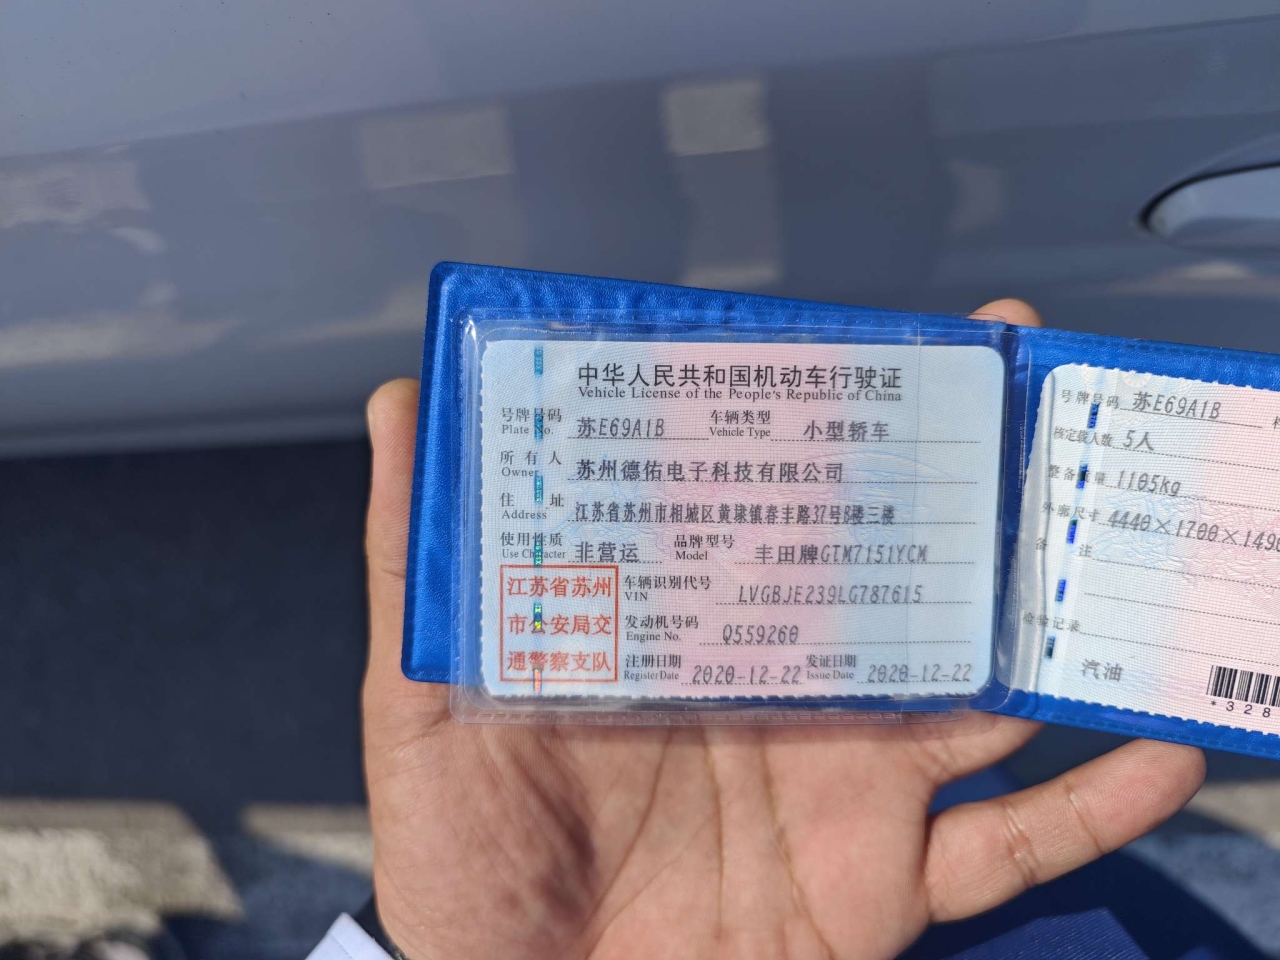 中华人民共和国机动车行驶证
Vehicle License of the People's Republic of China
号牌号码 苏E69A1B 车辆类型 小型轿车
Plate No. Vehicle Type
所有人 苏州德佑电子科技有限公司
Owner
住址 江苏省苏州市相城区黄埭镇春丰路37号8楼三楼
Address
使用性质 非营运 品牌型号 丰田牌GTM7151YCM
Use Character Model
江苏省苏州
市公安局交
通警察支队
车辆识别代号 LVGBJE239LG787615
VIN
发动机号码 Q559260
Engine No.
注册日期 2020-12-22 发证日期 2020-12-22
Register Date Issue Date
号牌号码 苏E69A1B
核定载人数 5人
整备质量 1105kg
外廓尺寸 4440×1700×1490
备注
检验记录
汽油
*328